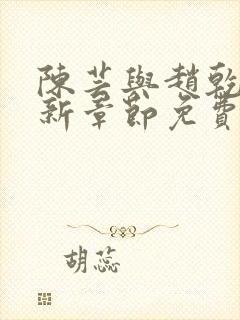 陳芸與趙乾
新章節免費
胡蕊